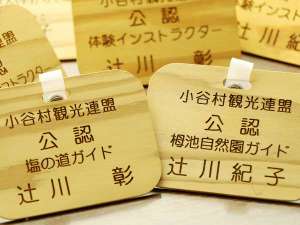 公認
体験インストラクター
辻川 彰
小谷村観光連盟
公認
塩の道ガイド
辻川 彰
小谷村観光連盟
公認
栂池自然園ガイド
辻川紀子